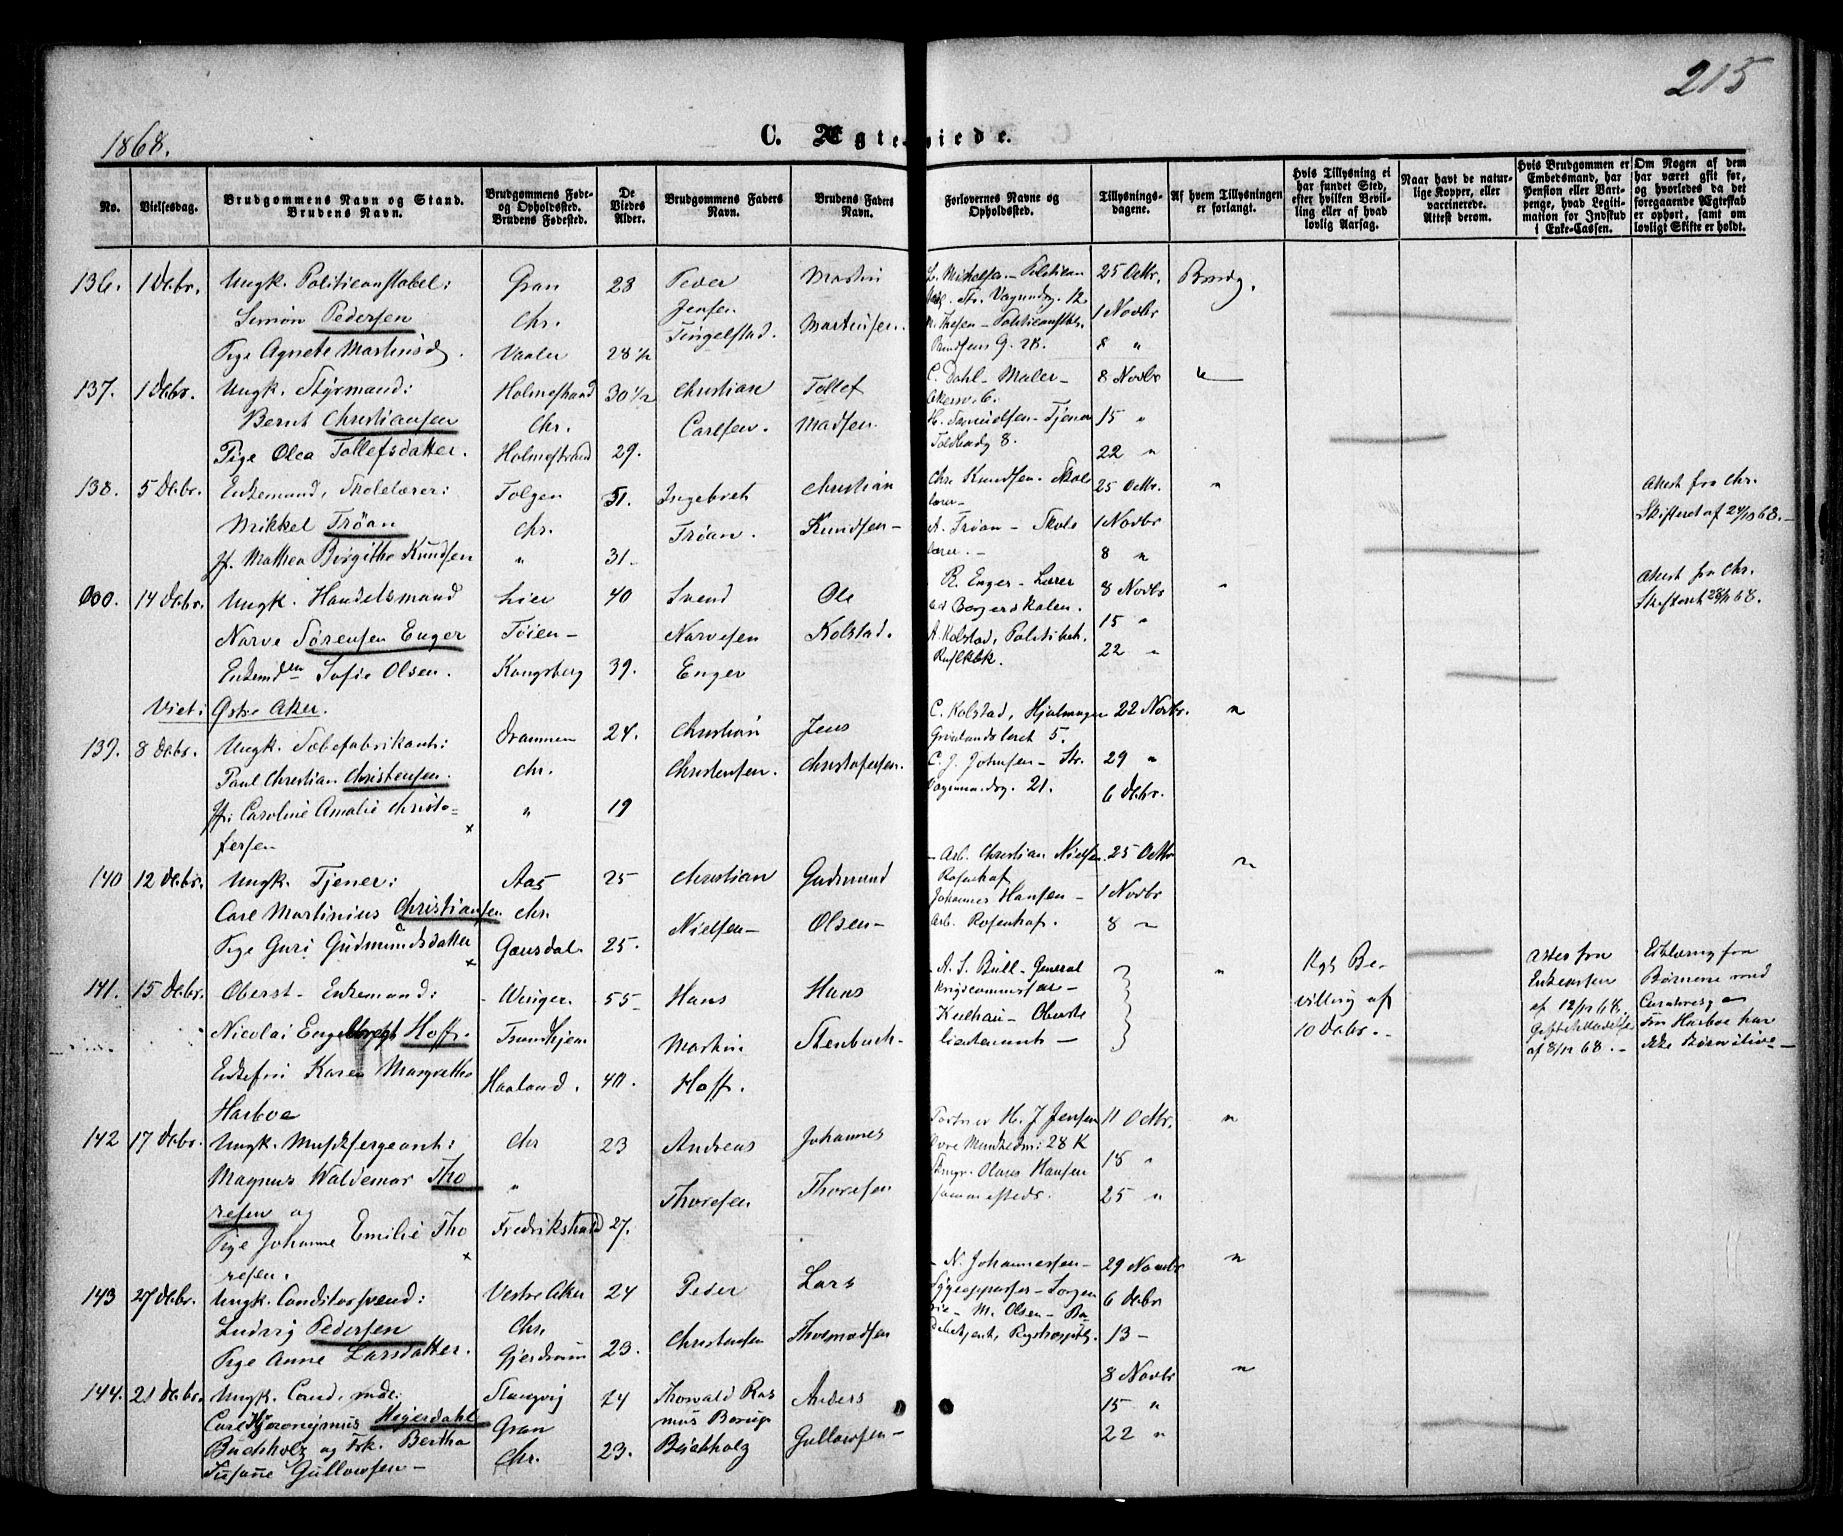 215
1868.
C. Ægteviede.
No.
Vielsesdag.
Brudgommens Navn og Stand.
Brudens Navn.
Brudgommens Føde- og Opholdssted.
Brudens Fødested.
De Viedes Alder.
Brudgommens Faders Navn.
Brudens Faders Navn.
Forlovernes Navne og Opholdssted.
Tillysnings-dagene.
Af hvem Tillysningen er forlangt.
Hvis Tillysning ei har fundet Sted, efter hvilken Bevilling eller af hvad lovlig Aarsag.
Naar havt de naturlige Kopper, eller vaccinerede. Attest derom.
Hvis Brudgommen er Embedsmand, har Pension eller Vartpenge, hvad Legitimation for Indskud i Enke-Cassen.
Om Nogen af dem har været gift før, og hvorledes da det foregaaende Ægteskab er ophørt, samt om lovligt Skifte er holdt.
136. 1 Debr. Ungk. Politiconstabel: Gran 28 Peder Martin 25 Octbr. Brudg.
Simon Pedersen Chr. Jensen Martinsen. 1 Novbr
Pige Agnete Martinsd. Vaaler 28 1/2 Tingelstad. 8 "
137. 1 Debr. Ungk. Styrmand: Holmestrand 30 1/2 Christian Tollef C. Dahl - Maler - 8 Novbr "
Bernt Christiansen Chr. Carlsen. Madsen. H. Samuelsen - Tjener 15 "
Pige Olea Tollefsdatter. Holmestrand 29. Toldbodg 8. 22 "
138. 5 Debr. Enkemand, Skolelærer: Tolgen 51. Ingebret Christian Chr. Knudsen. Skole 25 Octbr. " Attest fra Chr.
Mikkel Trøan Chr. Trøan. Knudsen - lærer - A. Trøan - Skole 1 Novbr Skifteret af 24/10 68. -
Jf. Mathea Birgitha Knudsen " 31. lærer. - 8 "
000. 14 Debr. Ungk. Handelsmand Lier 40 Svend Ole R. Enger - Lærer 8 Novbr " Attest fra Chr.
Narve Sørensen Enger Tøien - Narvesen Kolstad. ved Borgerskolen. 15 " Skifteret 28/11 68.
Enkemden Sofie Olsen. Kongsberg 39. Enger A. Kolstad, Politibet. 22 "
Viet i Østre Aker.
139. 8 Debr. Ungk. Sæbefabrikant: Drammen 24. Christian Jens C. Kolstad, 22 Novbr. "
Paul Christian Christensen. Chr. Christensen. Christofersen. Grønlandsleret 5. C. J. Johnsen - Str. 29 "
Jfr: Caroline Amalie Christo- " 19 Vognmandsg. 21. 6 Debr.
fersen
140 12 Debr. Ungk. Tjener: Aas 25 Christian Gudmund - Arb. Christian Nielsen. 25 Octbr "
Carl Martinius Christiansen Chr. Nielsen - Olsen - Johannes Hansen - 1 Novbr
Pige Guri Gudmundsdatter Gausdal 25. Arb. Rosenhof. 8 "
141. 15 Debr. Oberst - Enkemand: Vinger. 55 Hans Hans - A. S. Bull - General " Kgl Be- Attest fra Erklæring fra
Nicolai Engelbregt Hoff. Trondhjem Martin Stenbuch - krigscommissær - villing af Enkecassen Børnene med
Enkefru Karen Margrethe Haaland. 40. Hoff. Keilhau - Oberste 10 Debr. - af 12/12 68. Curator og -
Harboe lieutenant - af 8/12 68. - Fru Harboe har
ikke Børn ilive -
142 17 Debr. Ungk. Musiksergeant: Chr 23 Andreas Johannes Portner H. J. Jensen 11 Octbr. "
Magnus Waldemar Tho " Thoresen Thoresen Øvre 28 K 18 "
resen og Olaus Hansen
Pige Johanne Emilie Tho Fredrikshald 27. sammesteds. 25 "
resen.
143 27 Debr. Ungk. Conditorsvend: Vestre Aker 24 Peder Lars - N. Johannessen - 29 Novbr "
Ludvig Pedersen Chr. Christensen Thormodsen Sygeopp. - M. Olsen - 6 Debr
Pige Anne Larsdatter. Gjerdrum 23. 13 -
144. 21 Debr. Ungk. Cand. med: Slangvig 24 Thorvald Ras Anders 8 Novbr "
Carl Hieronymus Heyerdahl Gran mus Borup Gullowsen - 15 "
Buchholz og Frk. Bertha Chr. 23. Buchholz 22 "
Susanne Gullowsen -